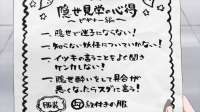 隠世見学の心得
〜ビギナー編〜
一、隠世で迷子にならない！
一、知らない妖怪についていかない！
一、イツキの言うことをよく聞き
ケンカしない！
一、隠世酔いをして具合が
悪くなったらスグに言う！
服装
紋付きの服